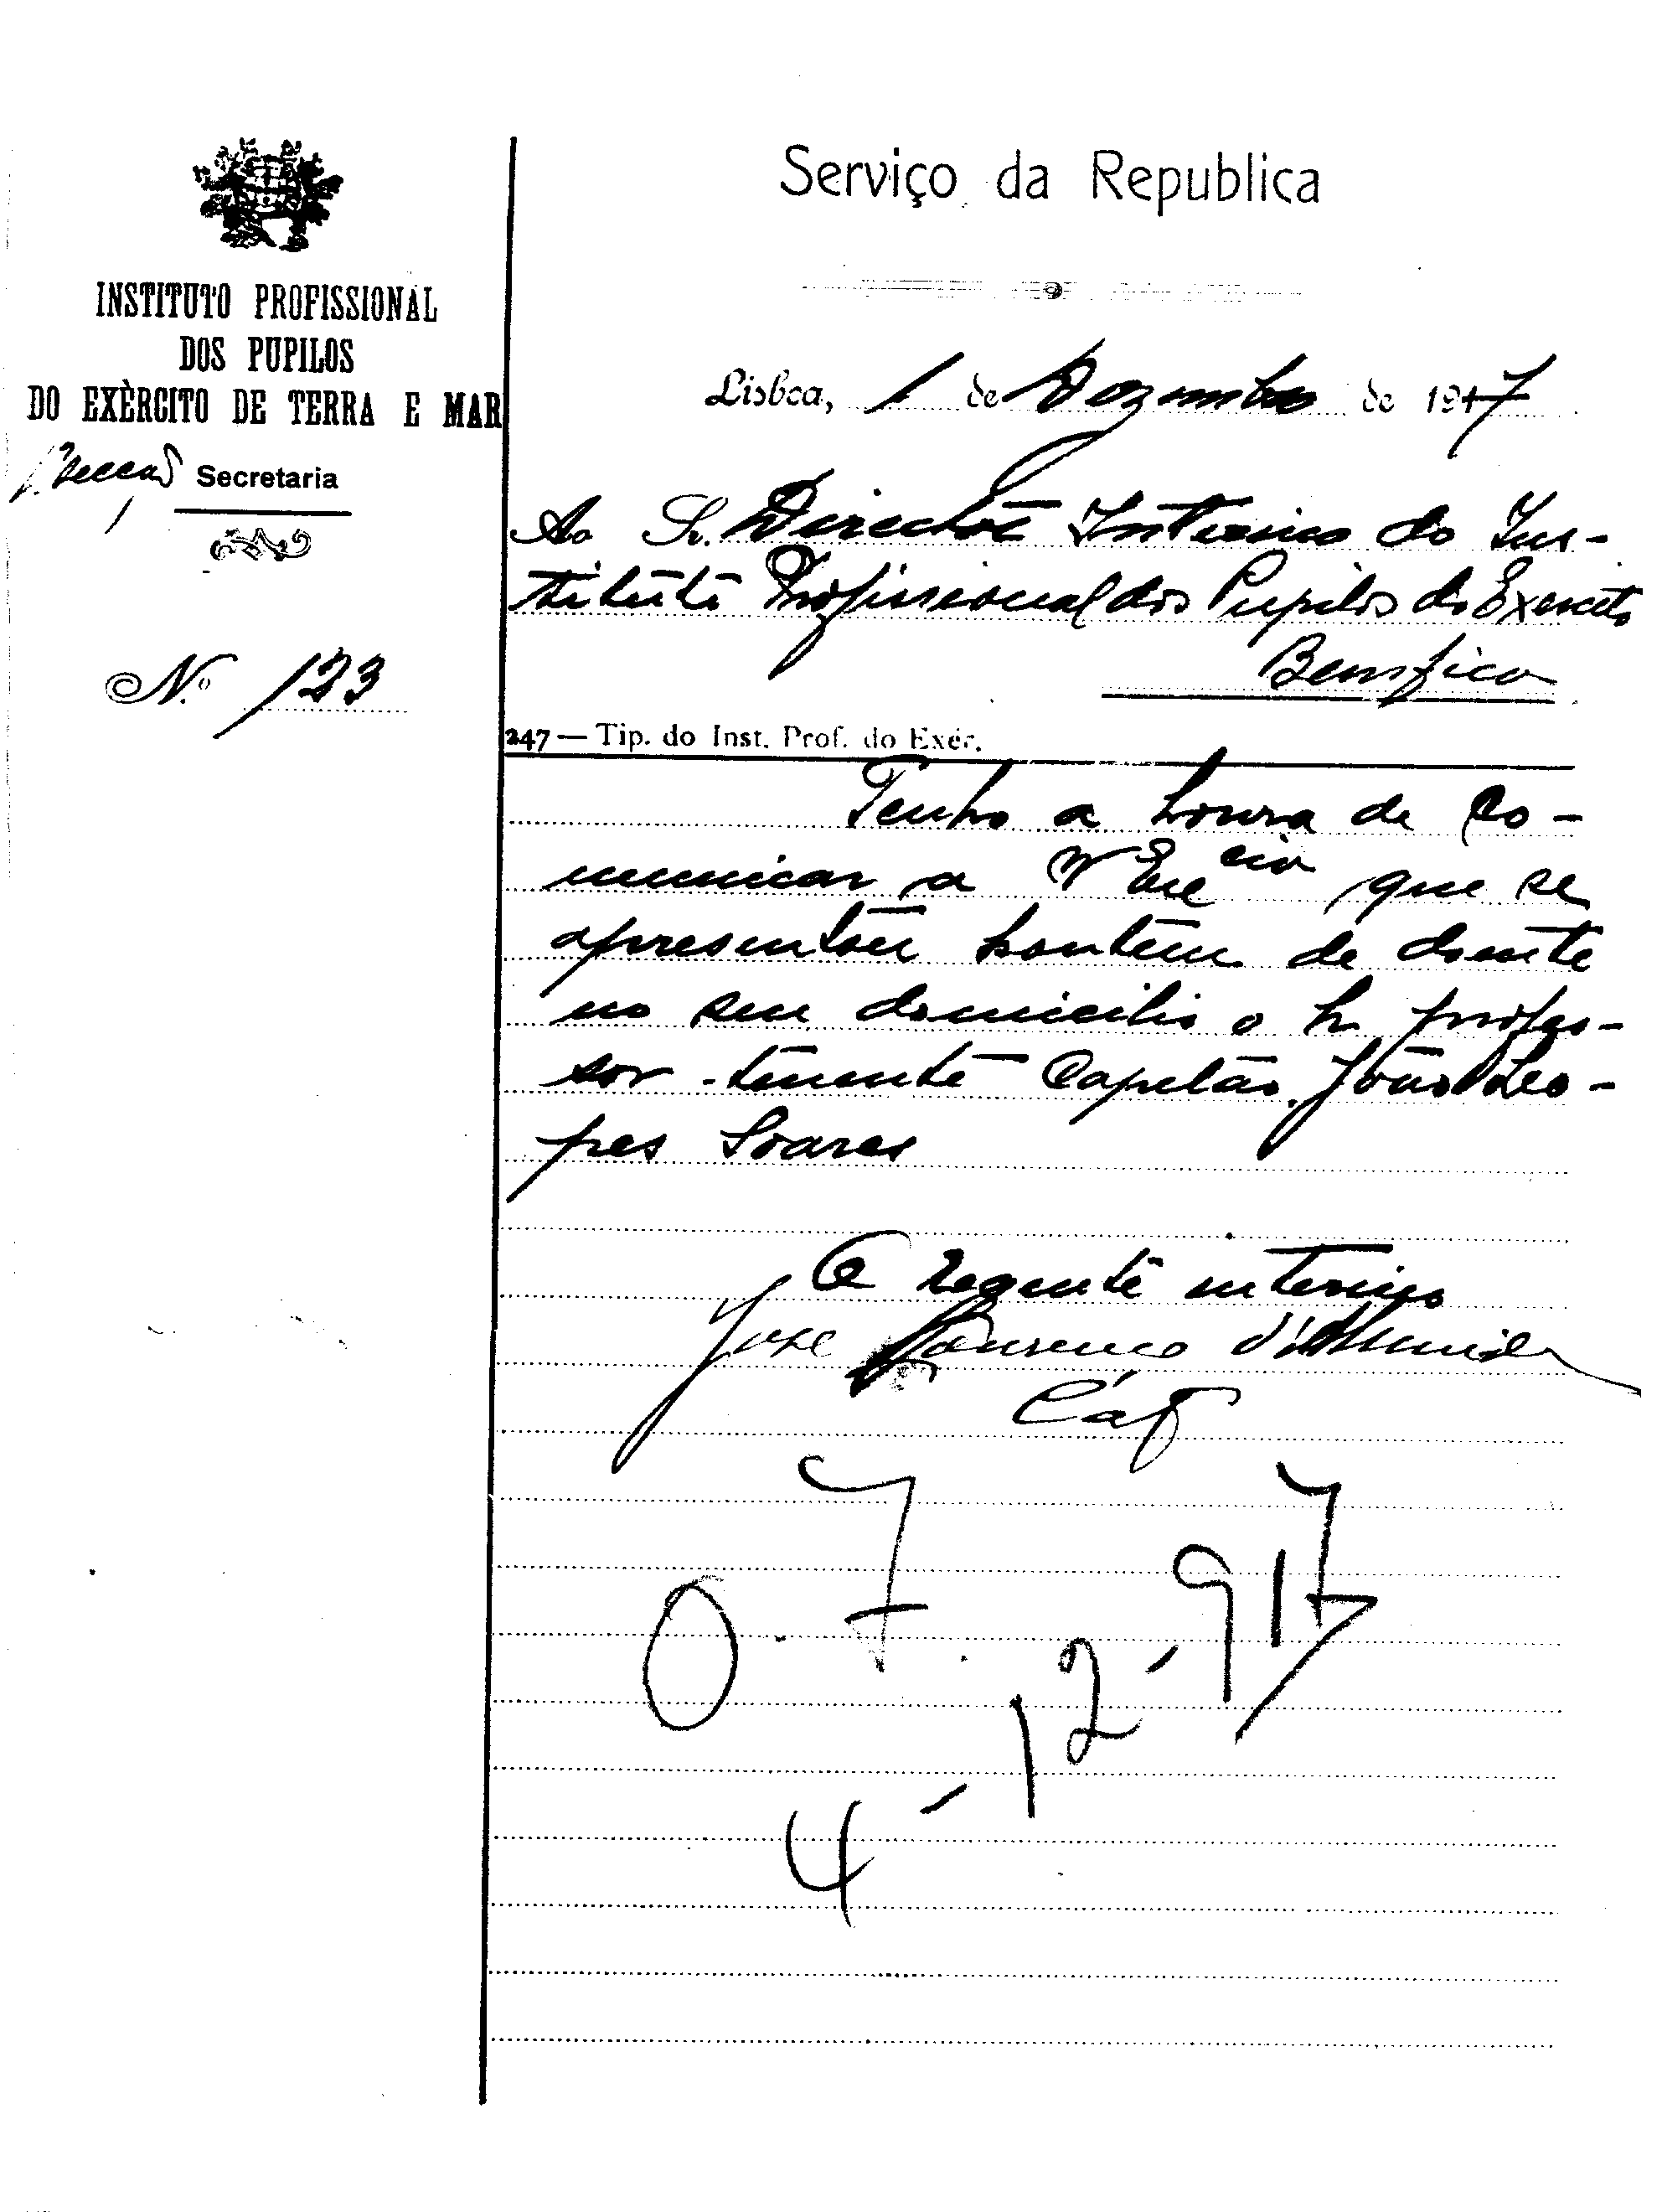 Serviço da Republica
INSTITUTO PROFISSIONAL
DOS PUPILOS
DO EXÈRCITO DE TERRA E MAR
Secretaria
1
Nº 123
Lisboa, 1 de Dezembro de 1917
Ao Sr. Director Interino do Ins-
tituto Profissional dos Pupilos do Exercito
Bemfica
247 — Tip. do Inst. Prof. do Exér.
Tenho a honra de Co-
municar a V Exc cia que se
apresentou hontem de doente
no seu domicilio o Sr. profes-
sor - tenente Capitão João Lo-
pes Soares
O regente interino
José Lourenço d'Almeida
Cap
O. 7.
4-12-917